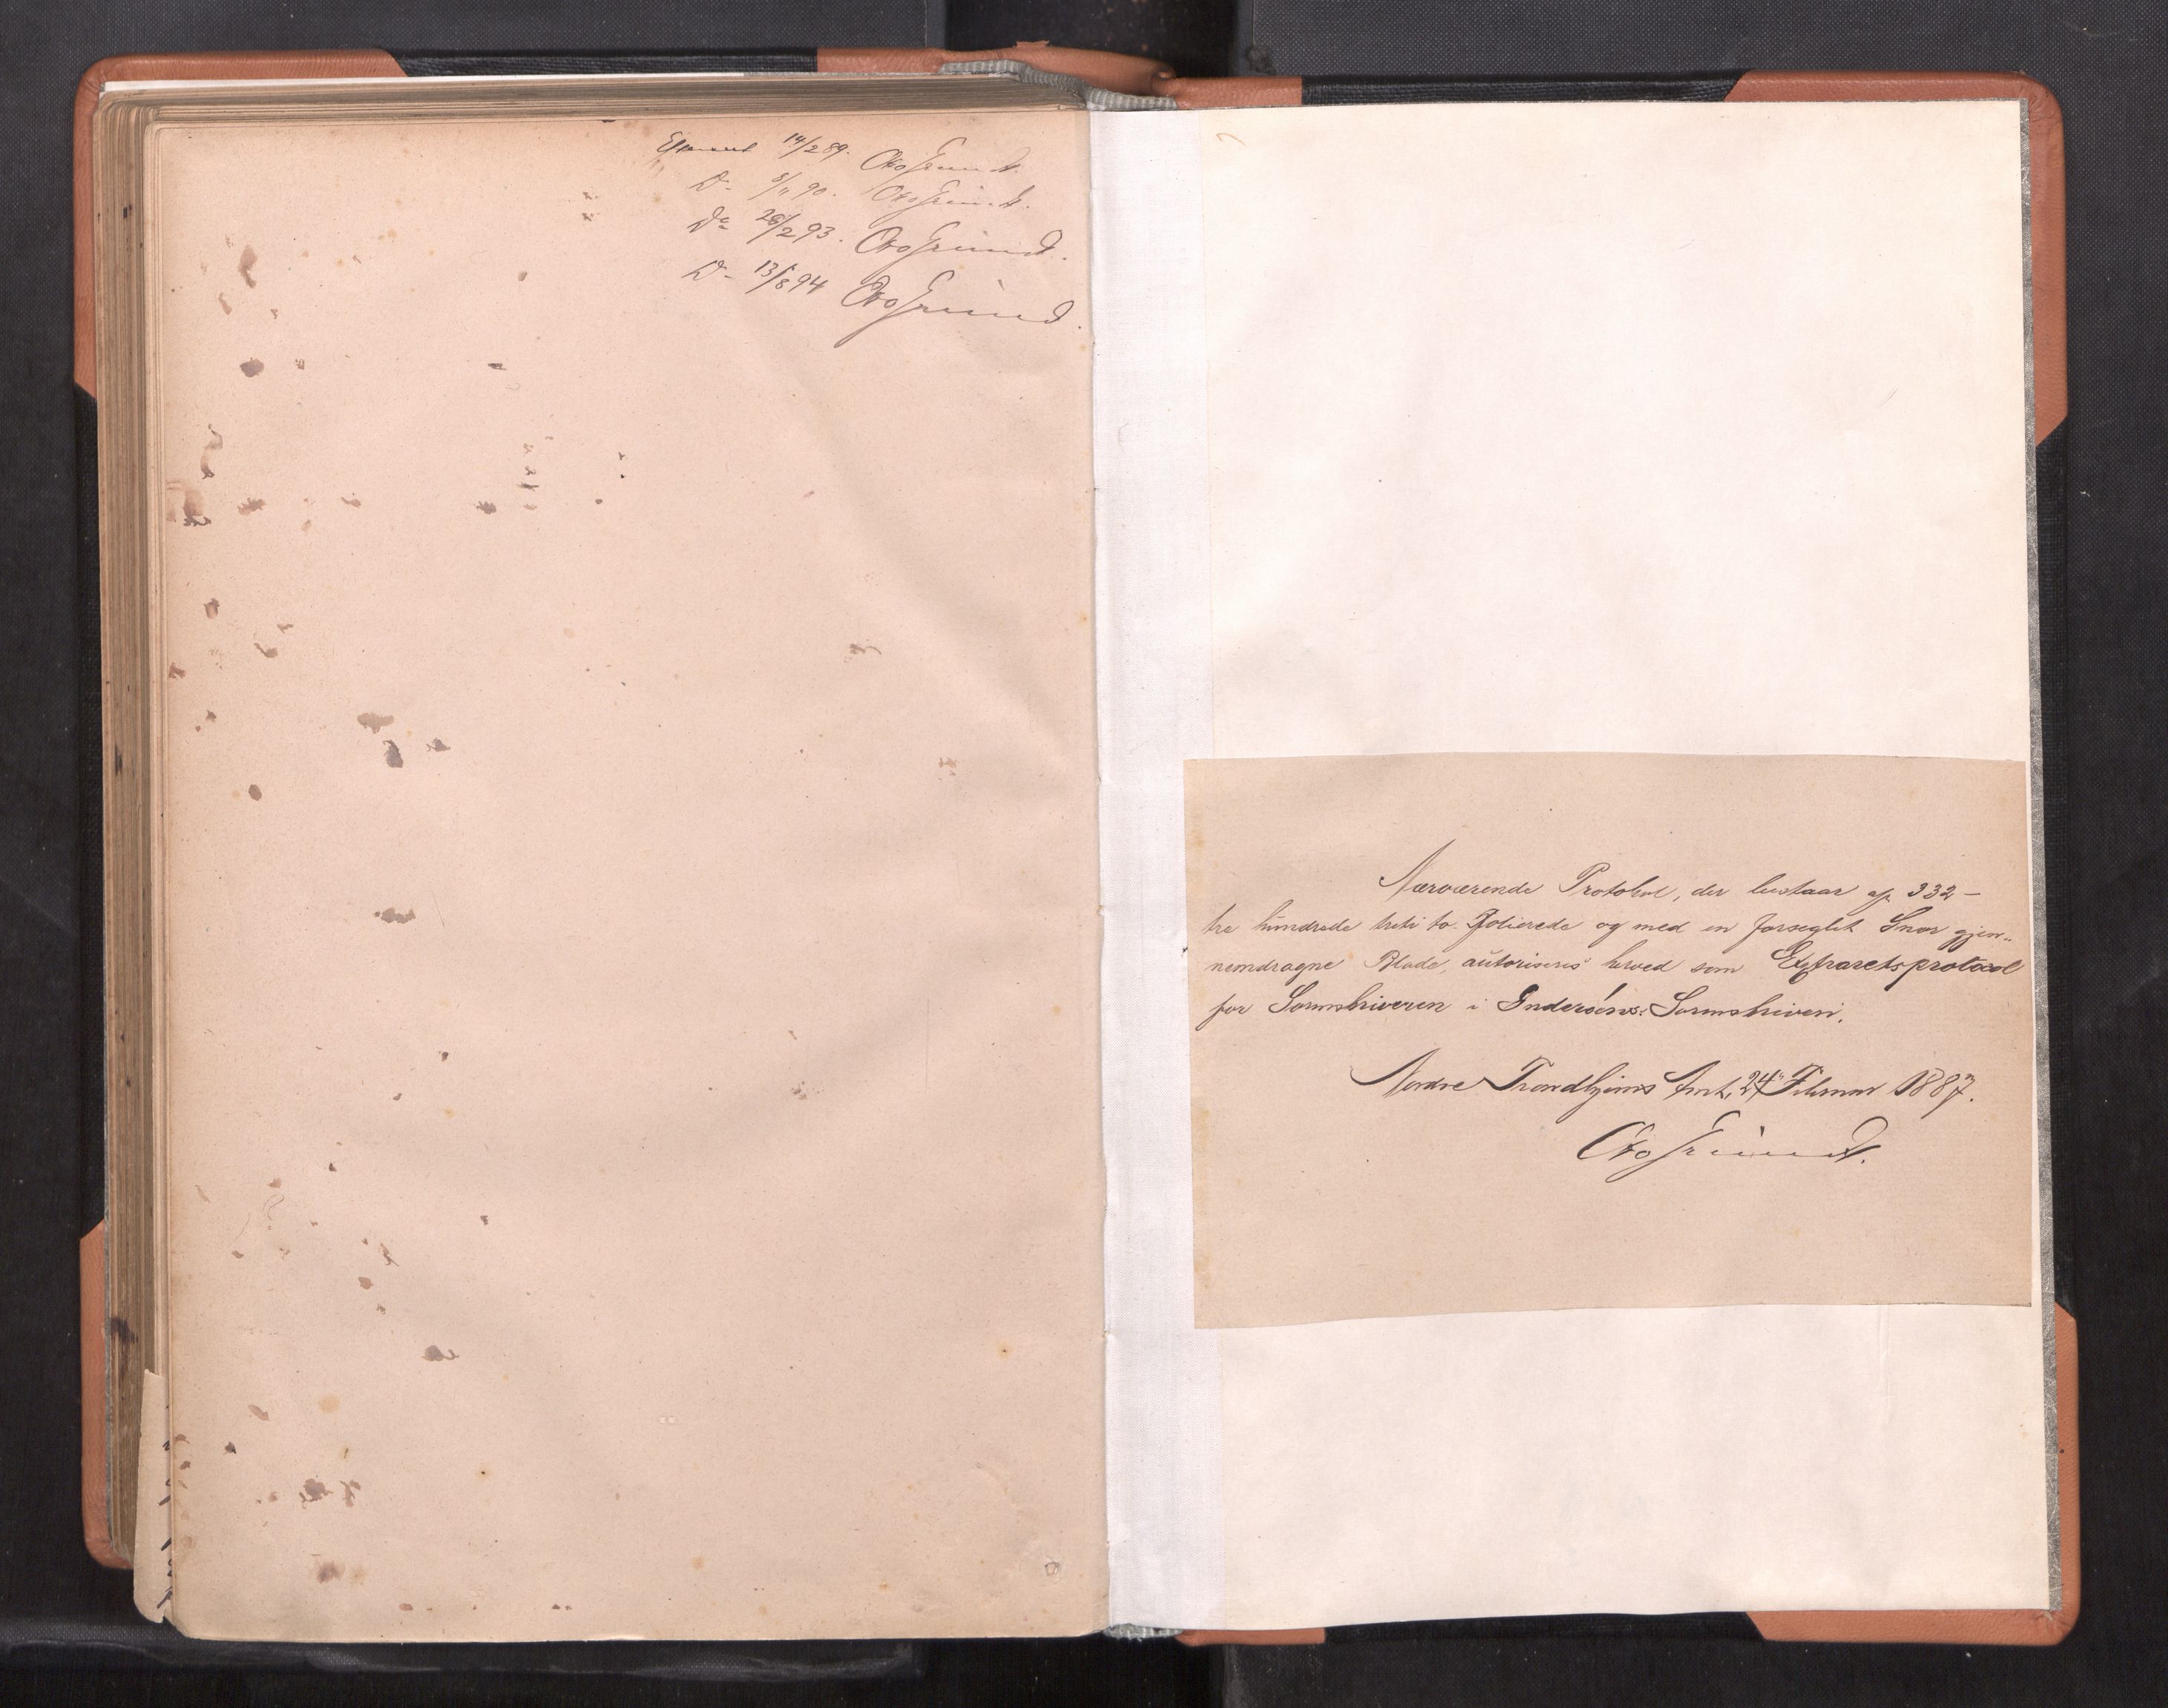 Efterseet 14/2 89. Otto Grundt.
Do 8/11 90. Otto Grundt.
Do 28/2 93. Otto Grundt.
Do 13/8 94 Otto Grundt.
Nærværende Protokol, der bestaar af 332 –
tre hundrede treti to. Folierede og med en forseglet Snor gjen-
nemdragne Blade, autoriseres herved som Extraretsprotocol
for Sorenskriveren i Inderøens Sorenskriveri.
Nordre Trondhjems Amt, 24 Februar 1887.
Otto Grundt.